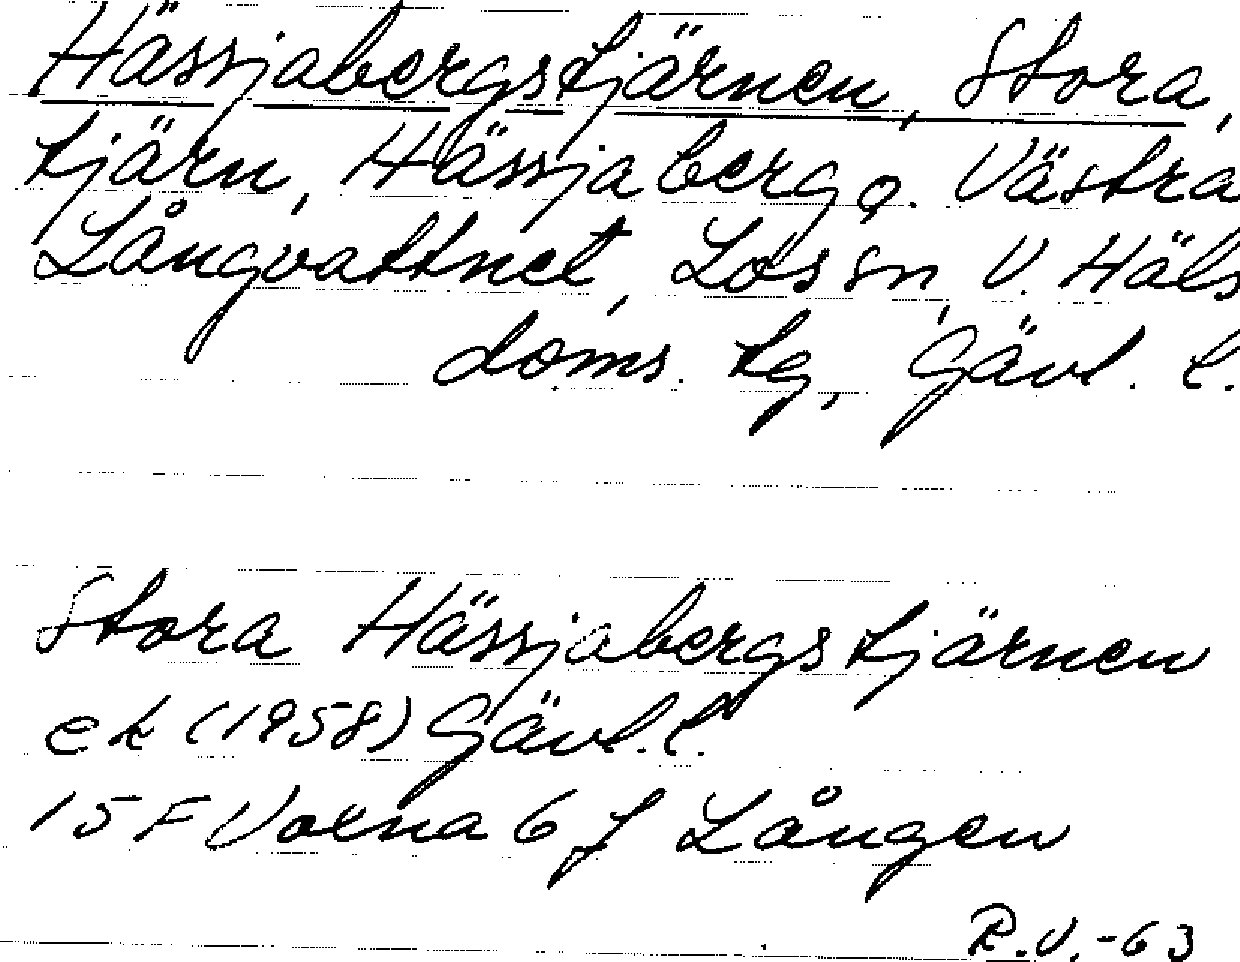 Hässjabergstjärnen, Stora,
tjärn, Hässjaberg o. Västra
Långvattnet, Los sn, V. Häls
doms. tg, Gävl. l.
Stora Hässjabergstjärnen
ek (1958) Gävl. l.
15 F Voxna 6 f Lången
R.V.-63